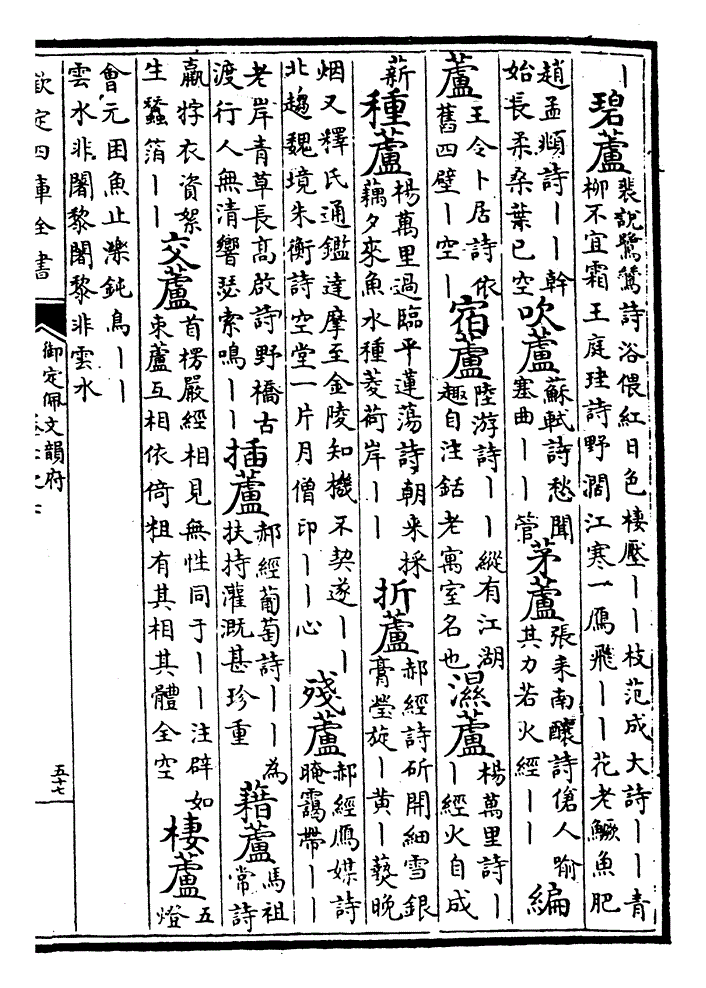 丨碧蘆
裴說鷺鷥詩浴偎紅日色棲壓丨丨枝范成大詩丨丨青
柳不宜霜王庭珪詩野濶江寒一鴈飛丨丨花老鱖魚肥
趙孟頫詩丨丨幹
始長柔桑葉已空
吹蘆
蘇軾詩愁聞
塞曲丨丨管
茅蘆
張耒南釀詩傖人喻
其力若火經丨丨
編
蘆
王令卜居詩依
舊四壁丨空丨
宿蘆
陸游詩丨丨縱有江湖
趣自注銛老寓室名也
濕蘆
楊萬里詩丨
丨經火自成
薪
種蘆
楊萬里過臨平蓮蕩詩朝来採
藕夕來魚水種菱荷岸丨丨
折蘆
郝經詩斫開細雪銀
膏瑩旋丨黄丨爇晚
烟又釋氏通鑑達摩至金陵知機不契遂丨丨
北趨魏境朱衡詩空堂一片月僧印丨丨心
殘蘆
郝經鴈媒詩
晻靄帶丨丨
老岸青草長高啟詩野橋古
渡行人無清響瑟索鳴丨丨
插蘆
郝經葡萄詩丨丨為
扶持灌溉甚珍重
藉蘆
馬祖
常詩
羸牸衣資絮
生蠶箔丨丨
交蘆
首楞嚴經相見無性同于丨丨注辟如
束蘆互相依倚粗有其相其體全空
棲蘆
五
燈
會元困魚止濼鈍鳥丨丨
雲水非闍黎闍黎非雲水
欽定四庫全書
御定佩文韻府
五十七